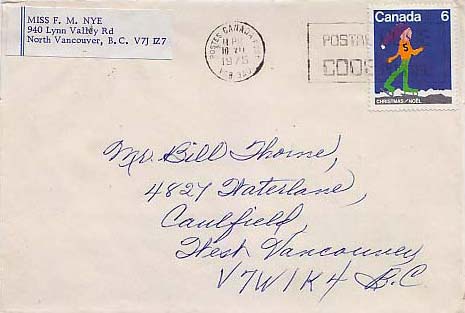 MISS F. M. NYE
940 Lynn Valley Rd
North Vancouver, B. C. V7J 1Z7
POSTES CANADA
PM
1975
POSTAL
CODE
Canada 6
S
CHRISTMAS/NOËL
Mr. Bill Thorne,
4827 Waterlane,
Caulfield,
West Vancouver
V7W1K4 B.C.